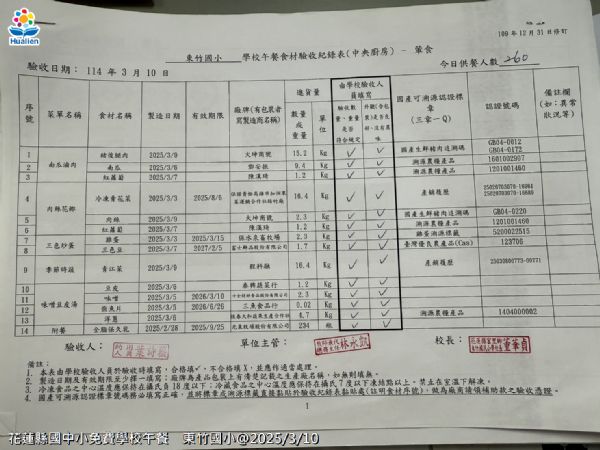 Hualien
109年12月31日修訂
東竹國小 學校午餐食材驗收紀錄表(中央廚房) - 葷食
驗收日期: 114 年 3 月 10 日
今日供餐人數: 260
序號 菜單名稱 食材名稱 製造日期 有效期限 廠牌(有包裝者需寫製造商名稱) 進貨量 數量或重量 單位 由學校驗收人員填寫 驗收數量、重量是否符合規定 國產可溯源認證標章(三章一Q) 認證號碼 備註欄(如:異常狀況等)
1 南瓜滷肉 2025/3/9 大坤商號 15.2 Kg ✓ ✓ 國產生鮮豬肉追溯碼 GB04-0012 GB04-0172
2 南瓜 2025/3/6 9.4 Kg ✓ ✓ 溯源農糧產品 1601002907
3 紅蘿蔔 2025/3/7 陳漢琦 1.2 Kg ✓ ✓ 溯源農糧產品 1201001460
4 肉絲花椰 冷凍青花菜 2025/3/3 2025/8/6 16.4 Kg ✓ ✓ 產銷履歷
5 肉絲 2025/3/9 大坤商號 2.3 Kg ✓ ✓ 國產生鮮豬肉追溯碼 GB04-0220
6 紅蘿蔔 2025/3/7 陳漢琦 1.2 Kg ✓ ✓ 溯源農糧產品 1201001460
7 三色炒蛋 雞蛋 2025/3/3 2025/3/15 保水集畜牧場 2.3 Kg ✓ ✓ 雞蛋溯源標籤 5200022515
8 三色豆 2025/3/7 2027/2/5 1.7 Kg ✓ ✓ 臺灣優良農產品(Cas) 123706
9 季節時蔬 青江菜 2025/3/9 16.4 Kg ✓ ✓ 產銷履歷
10 味噌豆皮湯 豆皮 2025/3/6 1.2 Kg ✓ ✓
11 味噌 2025/3/5 2026/3/10 2.3 Kg ✓ ✓
12 柴魚片 2025/3/5 2026/6/26 三久食品行 0.02 Kg ✓ ✓
13 洋蔥 2025/3/6 4.7 Kg ✓ ✓ 溯源農糧產品 1404000002
14 附餐 全脂保久乳 2025/2/28 2025/9/25 234 瓶 ✓ ✓
驗收人: 單位主管: 林永凱 校長: 董華貞
備註:
1. 本表由學校驗收人員於驗收時填寫,合格填✓,不合格填X,並應作適當處理。
2. 製造日期及有效期限至少擇一填寫;廠牌為產品包裝上有清楚記載之生產廠名稱,如無則填無。
3. 冷凍食品之中心溫度應保持在攝氏負18度以下;冷藏食品之中心溫度應保持在攝氏7度以下凍結點以上。禁止在室溫下解凍。
4. 國產可溯源認證標章號碼務必填寫正確,並將標章或溯源標籤直接黏貼於驗收紀錄表黏貼處(註明食材序號),做為廠商請領補助款之驗收憑證。
1
花蓮縣國中小免費學校午餐 東竹國小@2025/3/10